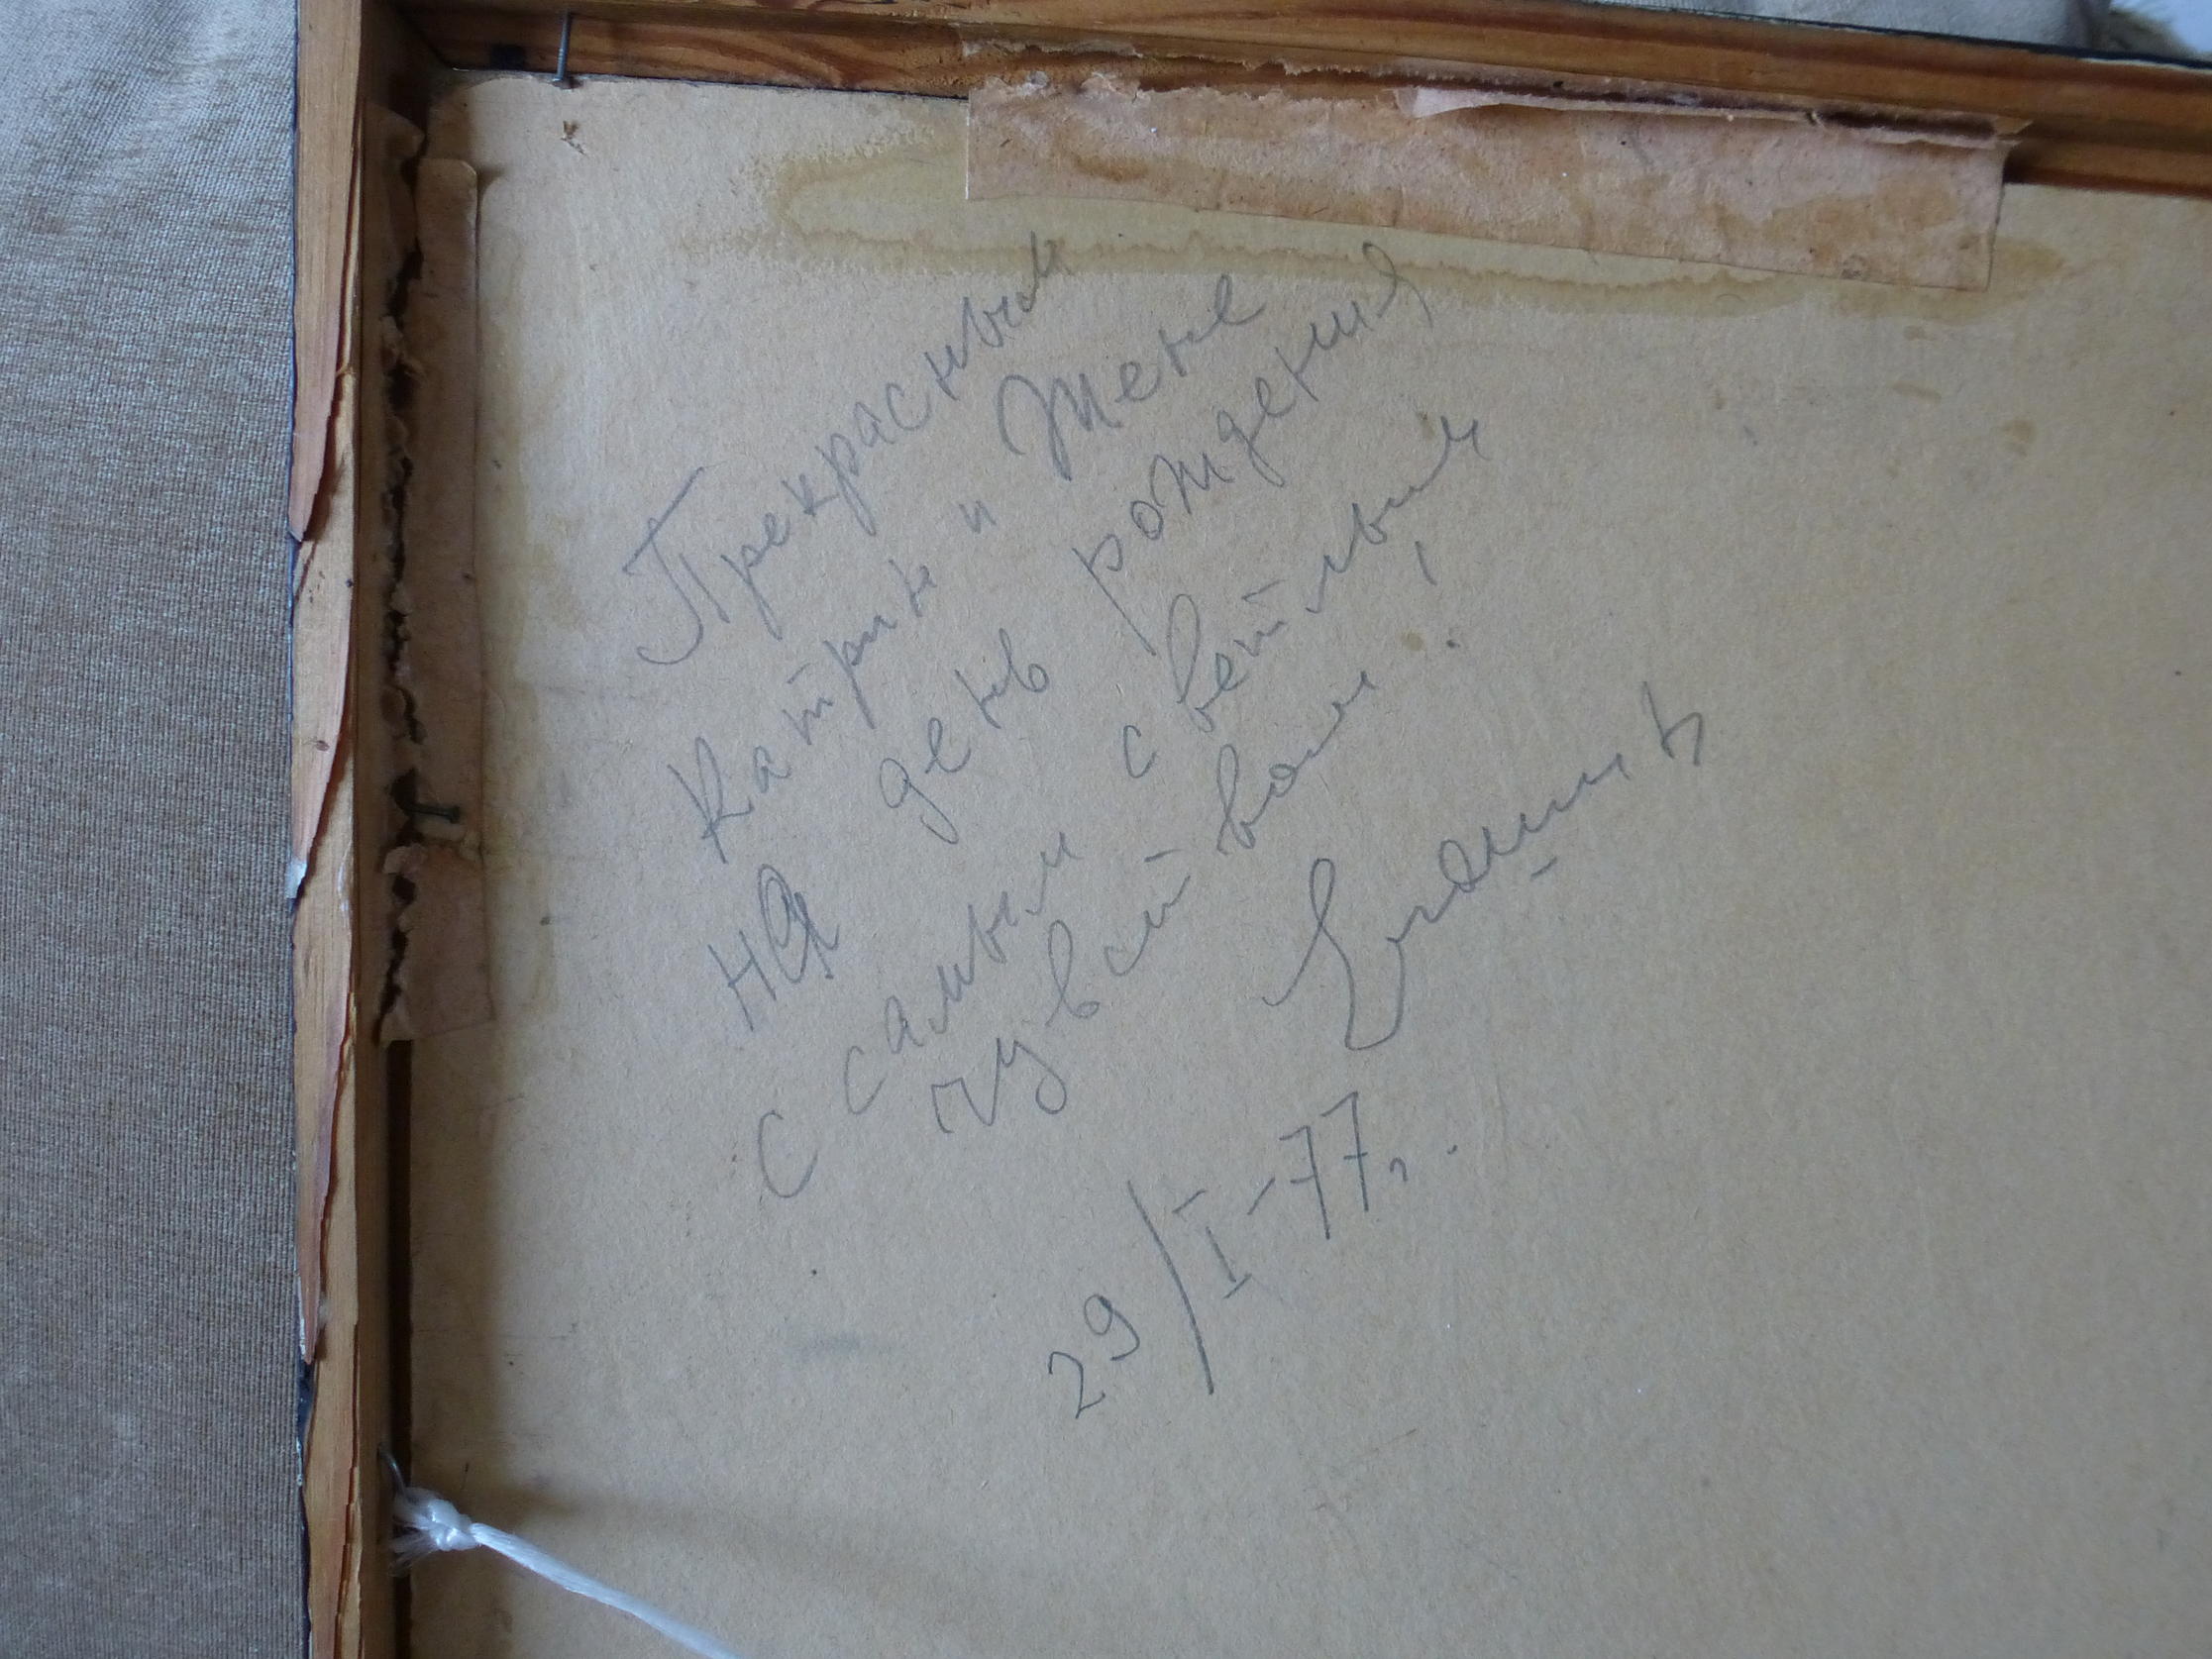 Прекрасным
Катрин и Жене
на день рождения
с самым светлым
чувством!
29/I-77г.